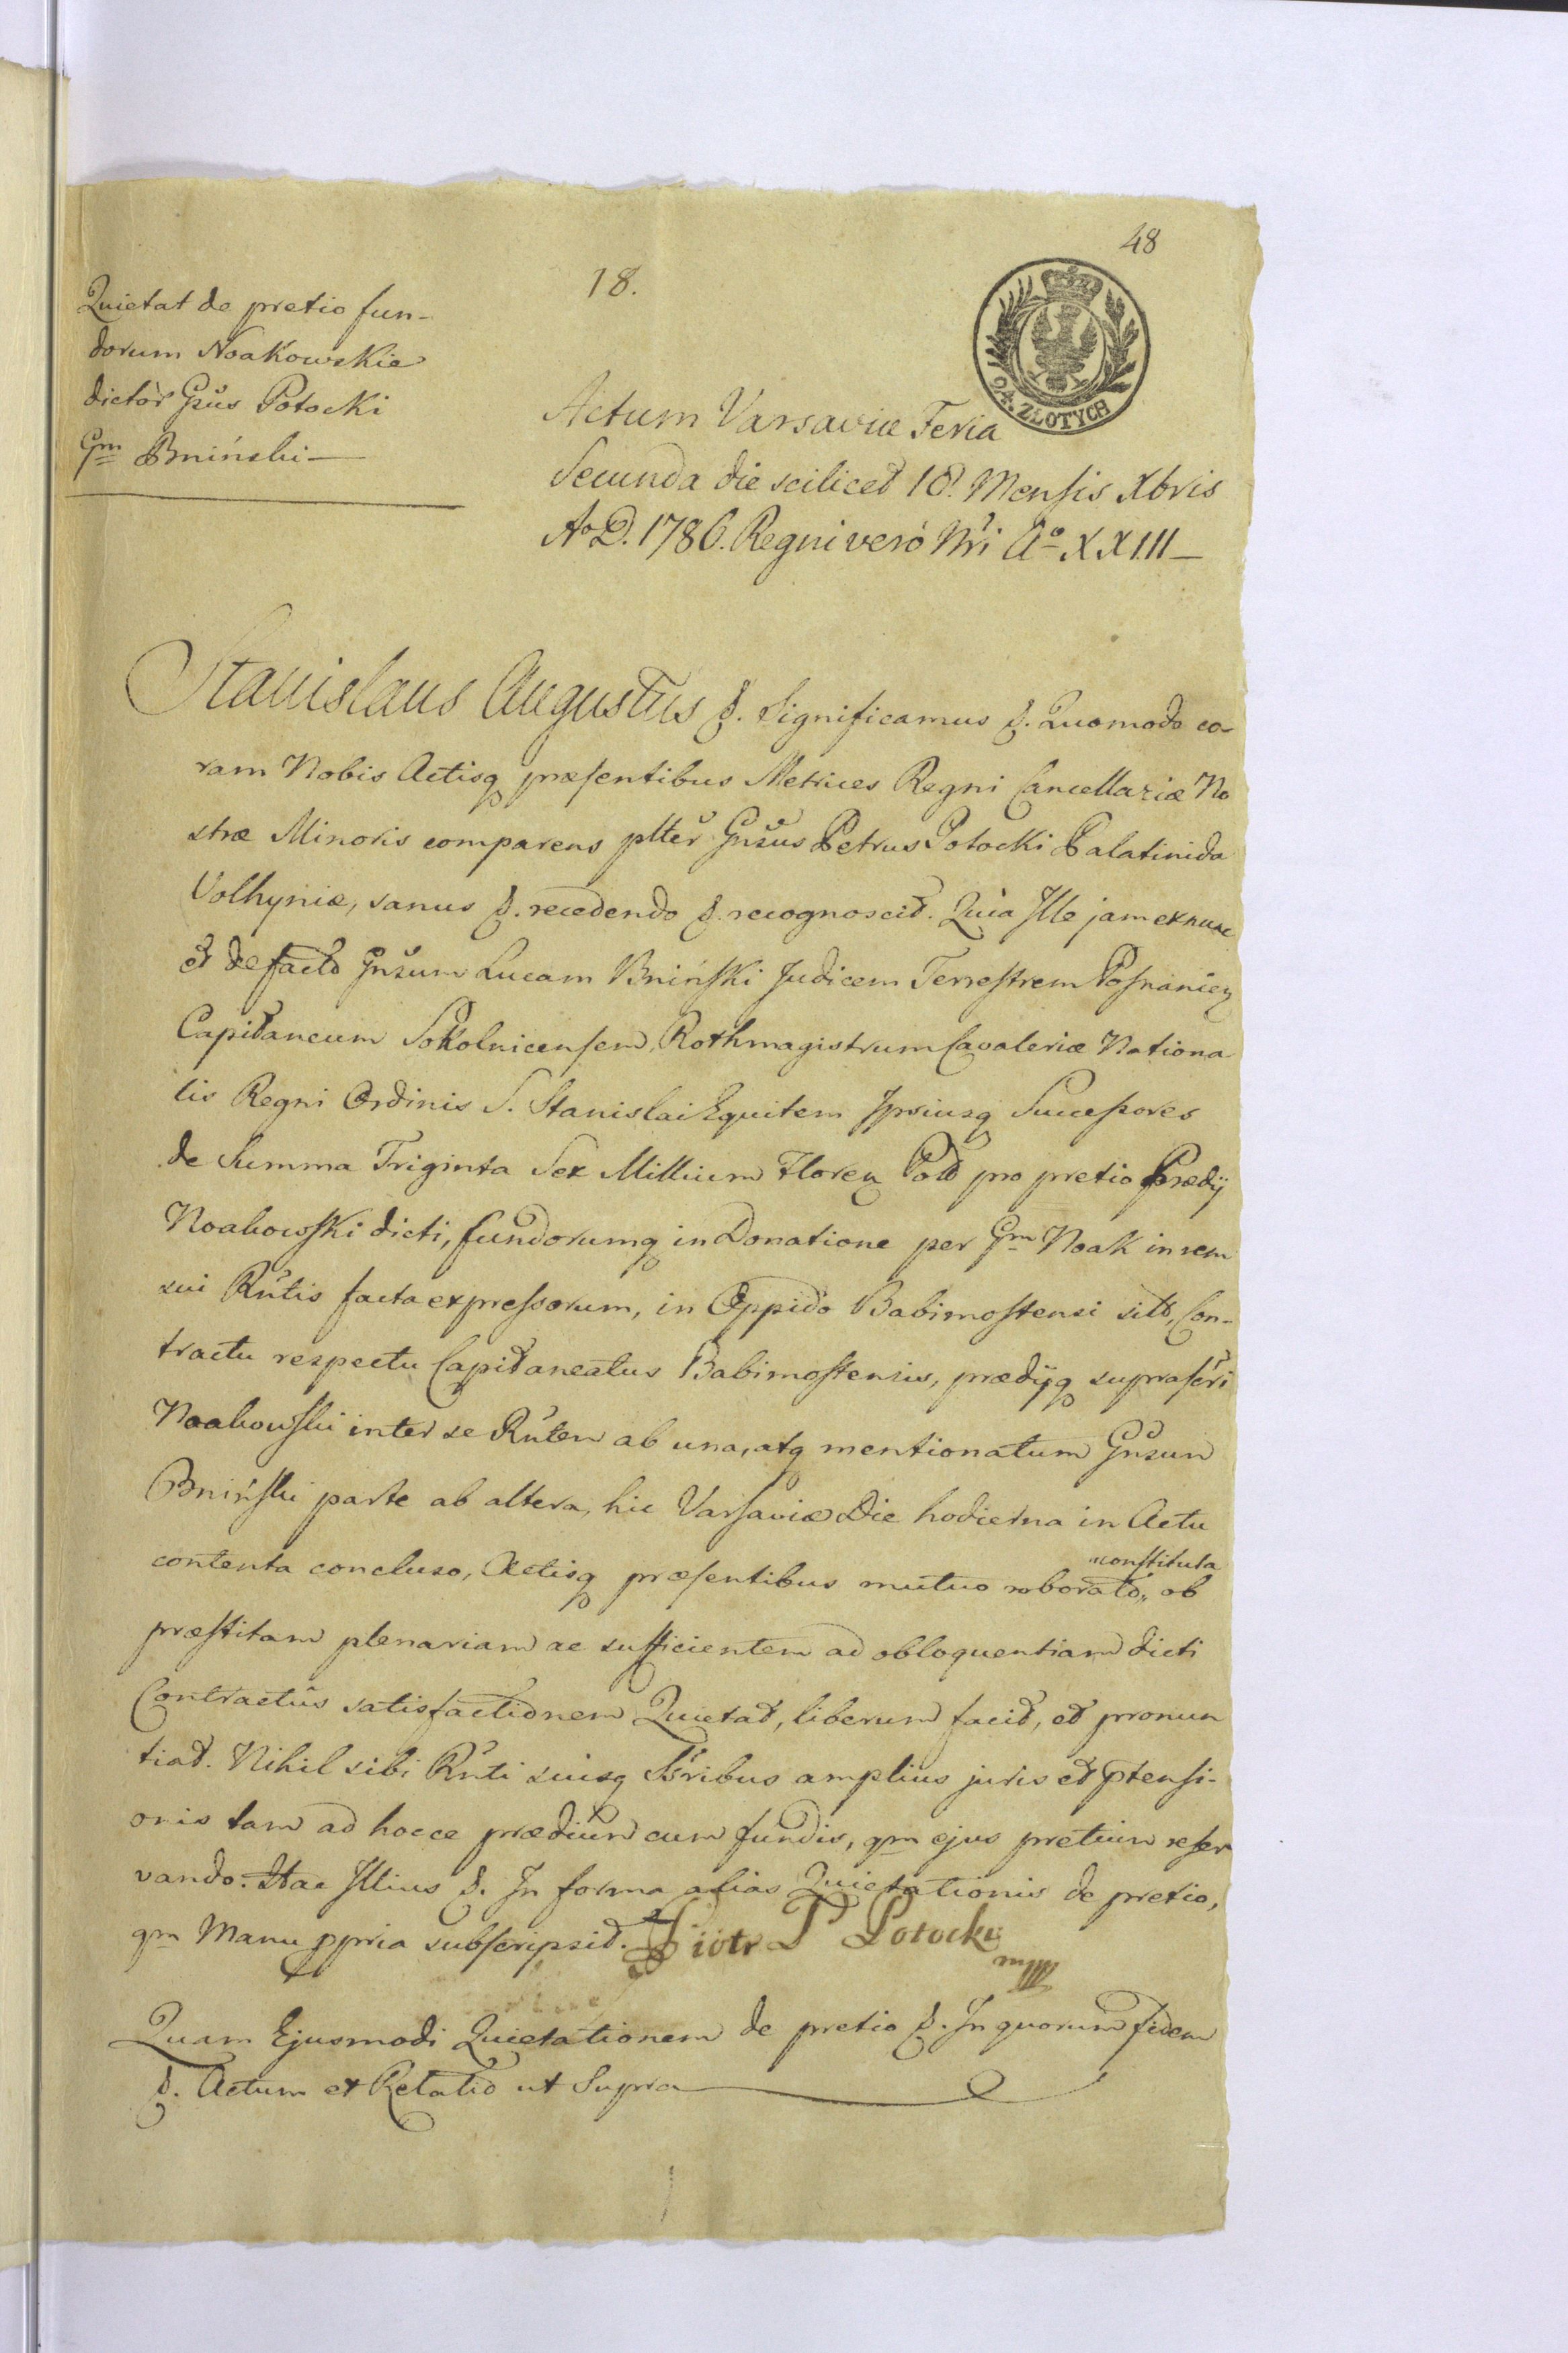 48
18.
24. ZŁOTYCH
Quietat de pretio fun-
dorum Noakowskie
dictor Gsus Potocki
Gm Bniński
Actum Varsaviæ Feria
Secunda die scilicet 18. Mensis Xbris
Ao D. 1786. Regni vero Nri Ao XXIII
Stanislaus Augustus &. Significamus &. Quomodo co-
ram Nobis Actisq præsentibus Metrices Regni Cancellariæ No
stræ Minoris comparens plter Gnsus Petrus Potocki Palatinida
Volhyniæ, sanus &. recedendo &. recognoscit. Quia Ille jam ex nunc
et de facto Gnsum Lucam Bniński Judicem Terrestrem Posnanien
Capitaneum Sokolnicensem, Rothmagistrum Cavaleriæ Nationa
lis Regni Ordinis S. Stanislai Equitem Ipsiusq Successores
de Summa Triginta Sex Millium Floren Pol pro pretio Prædij
Noakowski dicti, fundorumq in Donatione per Gm Noak in rem
sui Rntis facta expressorum, in Oppido Babimostensi sito, Con-
tractu respectu Capitaneatus Babimostensis, prædijq suprascri
Noakowski inter se Rntem ab una, atq mentionatum Gnsum
Bniński parte ab altera, hic Varsaviæ Die hodierna in Actu
contenta concluso, Actisq præsentibus mutuo roborato,, ob
,,constituta
præstitam plenariam ac sufficientem ad obloquentiam dicti
Contractûs satisfactionem Quietat, liberum facit, et pronun
tiat. Nihil sibi Rnti suisq Ssribus amplius juris et ptensi-
onis tam ad hocce prædium cum fundis, qm ejus pretium reser
vando. Hac Illius &. In forma alias Quietationis de pretio,
qm Manu ppria subscripsit. Piotr P Potocki
mpp
Quam Ejusmodi Quietationem de pretio &. In quorum fidem
&. Actum et Relatio ut Supra